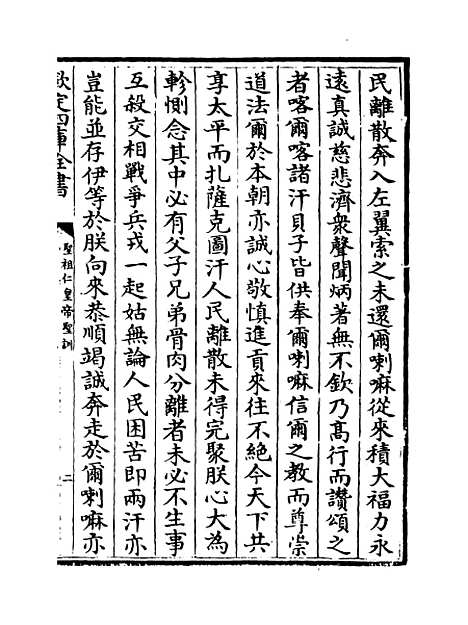 民離散奔入左翼索之未還爾喇嘛從來積大福力永
遠真誠慈悲濟衆聲聞炳著無不欽乃髙行而讚頌之
者喀爾喀諸汗貝子皆供奉爾喇嘛信爾之教而尊崇
道法爾於本朝亦誠心敬慎進貢來往不絶今天下共
享太平而扎薩克圖汗人民離散未得完聚朕心大為
軫惻念其中必有父子兄弟骨肉分離者未必不生事
互殺交相戰爭兵戎一起姑無論人民困苦即兩汗亦
豈能並存伊等於朕向來恭順竭誠奔走於爾喇嘛亦
欽定四庫全書
聖祖仁皇帝聖訓
二